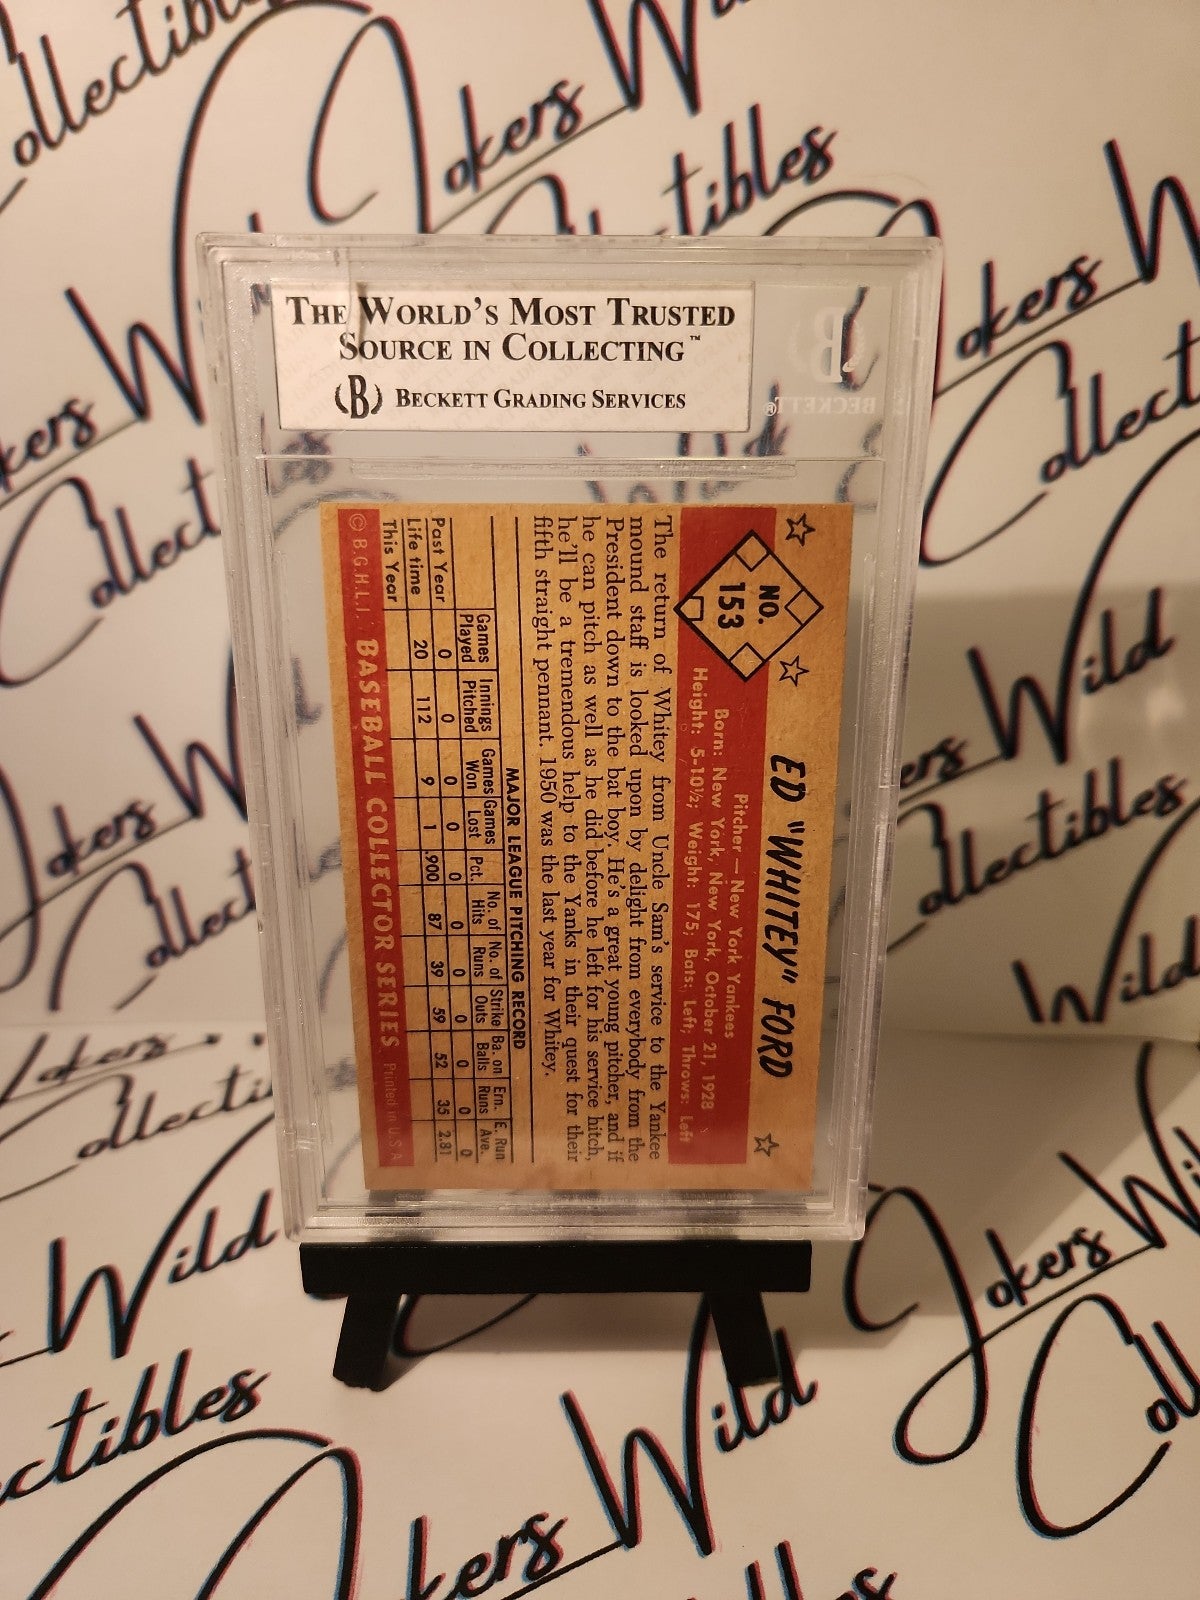 THE WORLD'S MOST TRUSTED
SOURCE IN COLLECTING™
(B) BECKETT GRADING SERVICES
B
BECKETT®
NO.
153
ED "WHITEY" FORD
Pitcher — New York Yankees
Born: New York, New York, October 21, 1928
Height: 5-10½; Weight: 175; Bats: Left; Throws: Left
The return of Whitey from Uncle Sam's service to the Yankee
mound staff is looked upon by delight from everybody from the
President down to the bat boy. He's a great young pitcher, and if
he can pitch as well as he did before he left for his service hitch,
he'll be a tremendous help to the Yanks in their quest for their
fifth straight pennant. 1950 was the last year for Whitey.
MAJOR LEAGUE PITCHING RECORD
Games Played Innings Pitched Games Won Games Lost Pct. No. of Hits No. of Runs Strike Outs Ba. on Balls Ern. Runs E. Run Ave.
Past Year 0 0 0 0 0 0 0 0 0 0 0
Life time 20 112 9 1 .900 87 39 59 52 35 2.81
This Year
© B.G.H.L.I. BASEBALL COLLECTOR SERIES Printed in U.S.A
Jokers Wild
Collectibles
Jokers Wild
Collectibles
Jokers Wild
Collectibles
Jokers Wild
Collectibles